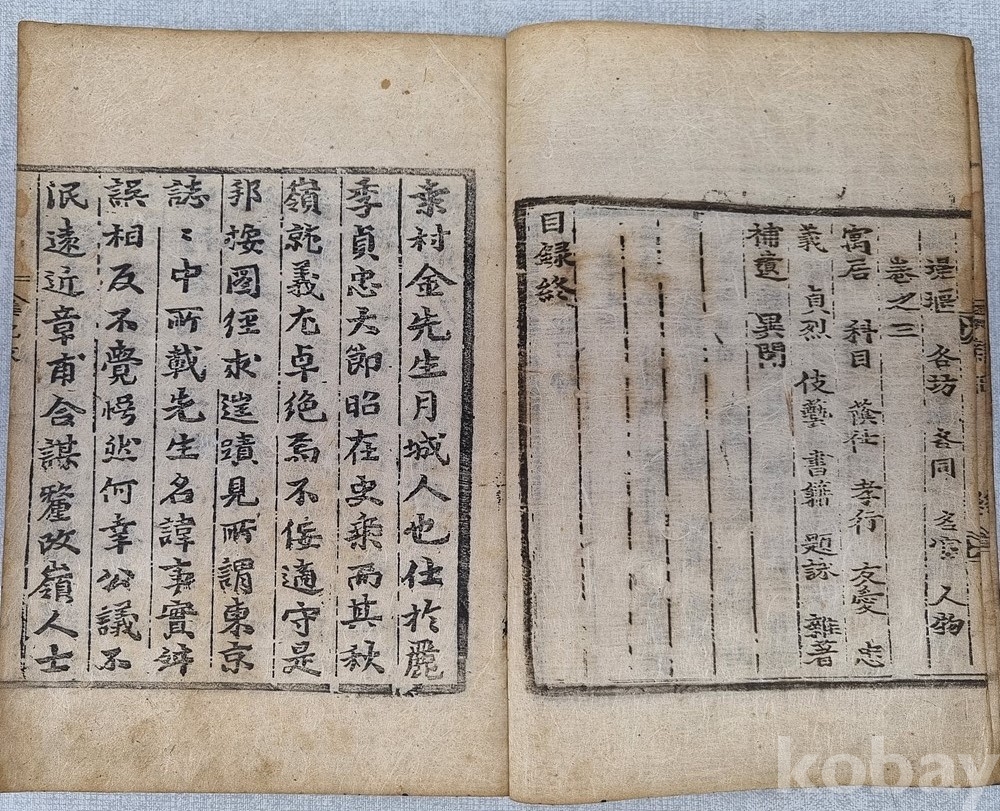 堤堰 各坊 各同 古宅 人物
卷之三
寓居 科目 蔭仕 孝行 友愛 忠
義 貞烈 伎藝 書籍 題詠 雜著
補遺 異聞
目録終
桑村金先生月城人也仕於麗
季貞忠大節昭在史乘而其秋
嶺就義尤卓絶焉不佞適守是
邦按國徑求遑蹟見所謂東京
誌〻中所載先生名諱事實斾
誤相反不覺愕然何幸公議不
泯遠近章甫合謀釐改嶺人士
kobay